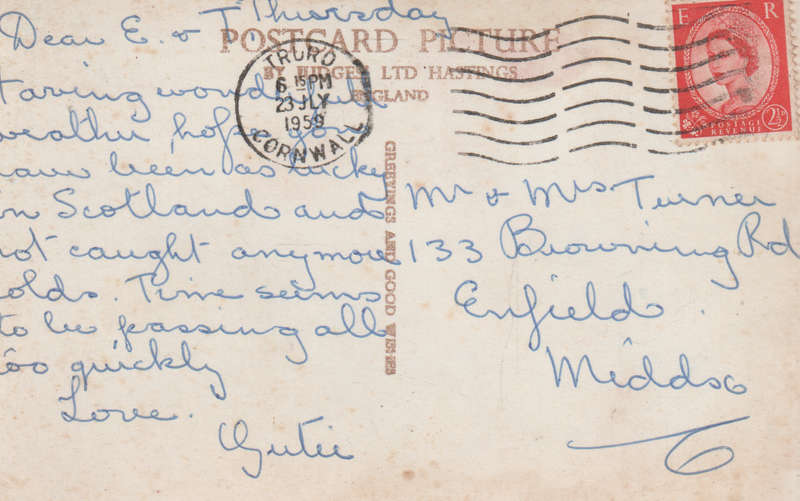 Thursday
Dear E. & T
Having wonderful
weather, hope you
have been as lucky
in Scotland and
not caught anymore
colds. Time seems
to be passing all
too quickly
Love.
POSTCARD PICTURE
BY JUDGES LTD HASTINGS
ENGLAND
GREETINGS AND GOOD WISHES
TRURO
6 15 PM
23 JLY
1959
CORNWALL
E R
POSTAGE
REVENUE
2½D
Mr & Mrs Turner
133 Browning Rd
Enfield.
Middsx